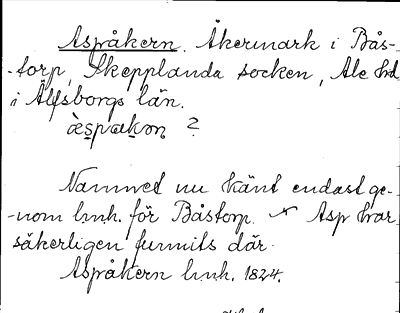 Aspråkern. Åkermark i Bås-
-torp, Skepplanda socken, Ale hd
i Älfsborgs län.
?
Namnet nu känt endast ge-
-nom lmh. för Båstorp. Asp har
säkerligen funnits där.
Aspråkern lmh. 1824.